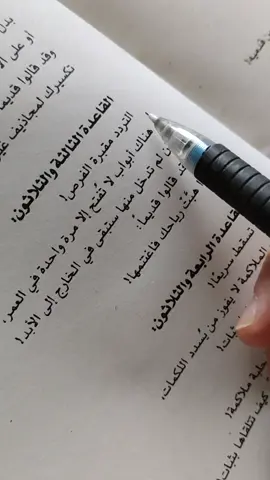 بدل
أو على الأ
وقد قالوا قديما
تكسيرك لمجاذيف غير
القاعدة الثالثة والثلاثون:
التردد مقبرة الفرص!
هناك أبواب لا تُفتح إلا مرة واحدة في العمر،
لم تدخل منها ستبقى في الخارج إلى الأبد!
قالوا قديماً:
هبَّتْ رياحك فاغتنمها!
القاعدة الرابعة والثلاثون:
تسقط سريعاً!
الملاكمة لا يفوز من يُسدد اللكمات،
حلبة ملاكمة!
كيف تتلقاها بثبات